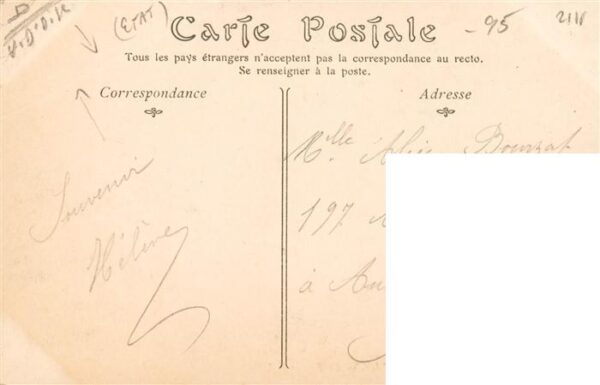 (ETAT)
Carte Postale
-95
Tous les pays étrangers n'acceptent pas la correspondance au recto.
Se renseigner à la poste.
Correspondance
Adresse
Souvenir
Hélène
Mlle Bourzat
197
à Au